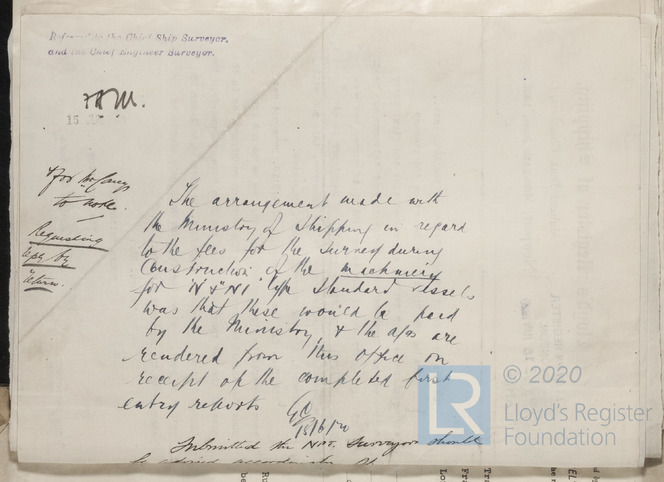 Referred to the Chief Ship Surveyor,
and the Chief Engineer Surveyor.
15
For Mr
to note.
Requesting
by
return.
The arrangement made with
the Ministry of Shipping in regard
to the fees for the survey during
construction of the machinery
for "N" & "N1" type standard vessels
was that these would be paid
by the Ministry, & the a/cs are
rendered from this Office on
receipt of the completed first
entry reports
15/6/20
Submitted the Nwc. Surveyors should
be advised accordingly
LR © 2020
Lloyd's Register
Foundation